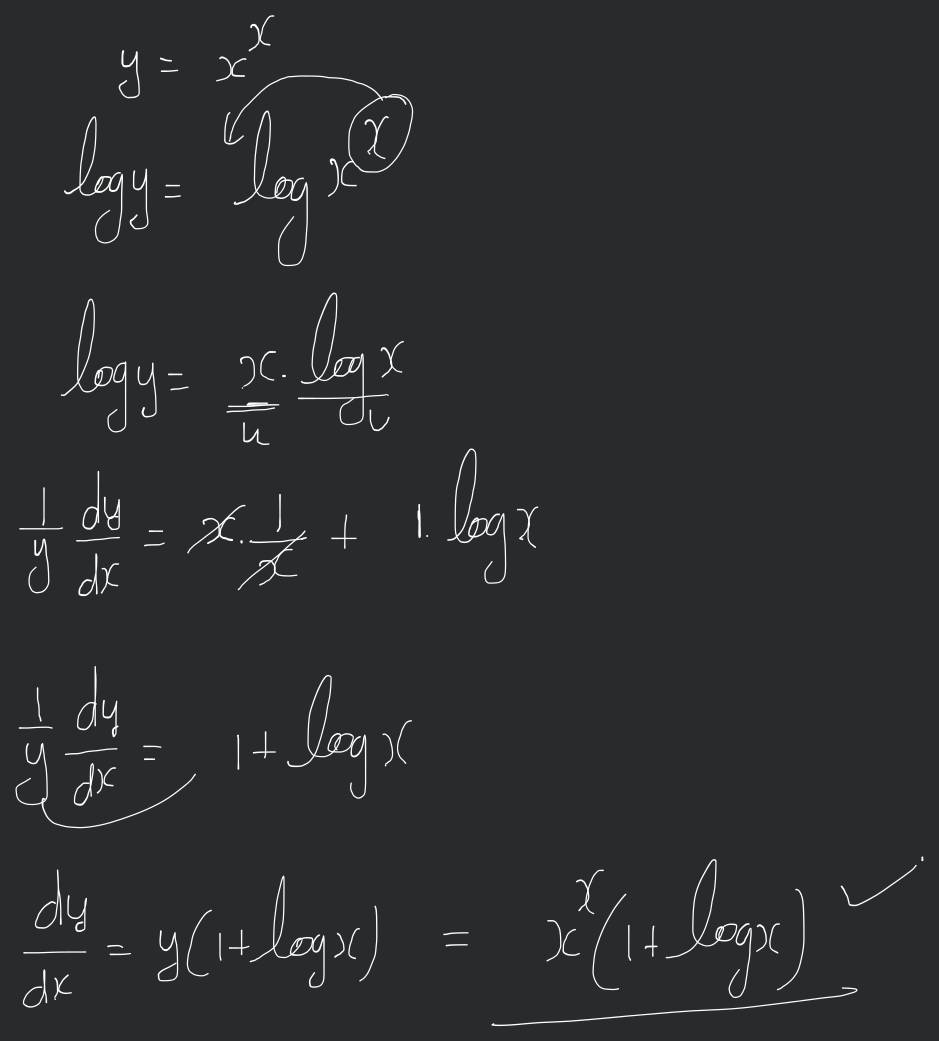 y = x^x
log y = log x^x
log y = x . log x
u v
1/y dy/dx = x . 1/x + 1 . log x
1/y dy/dx = 1 + log x
dy/dx = y(1 + log x) = x^x(1 + log x) ✓